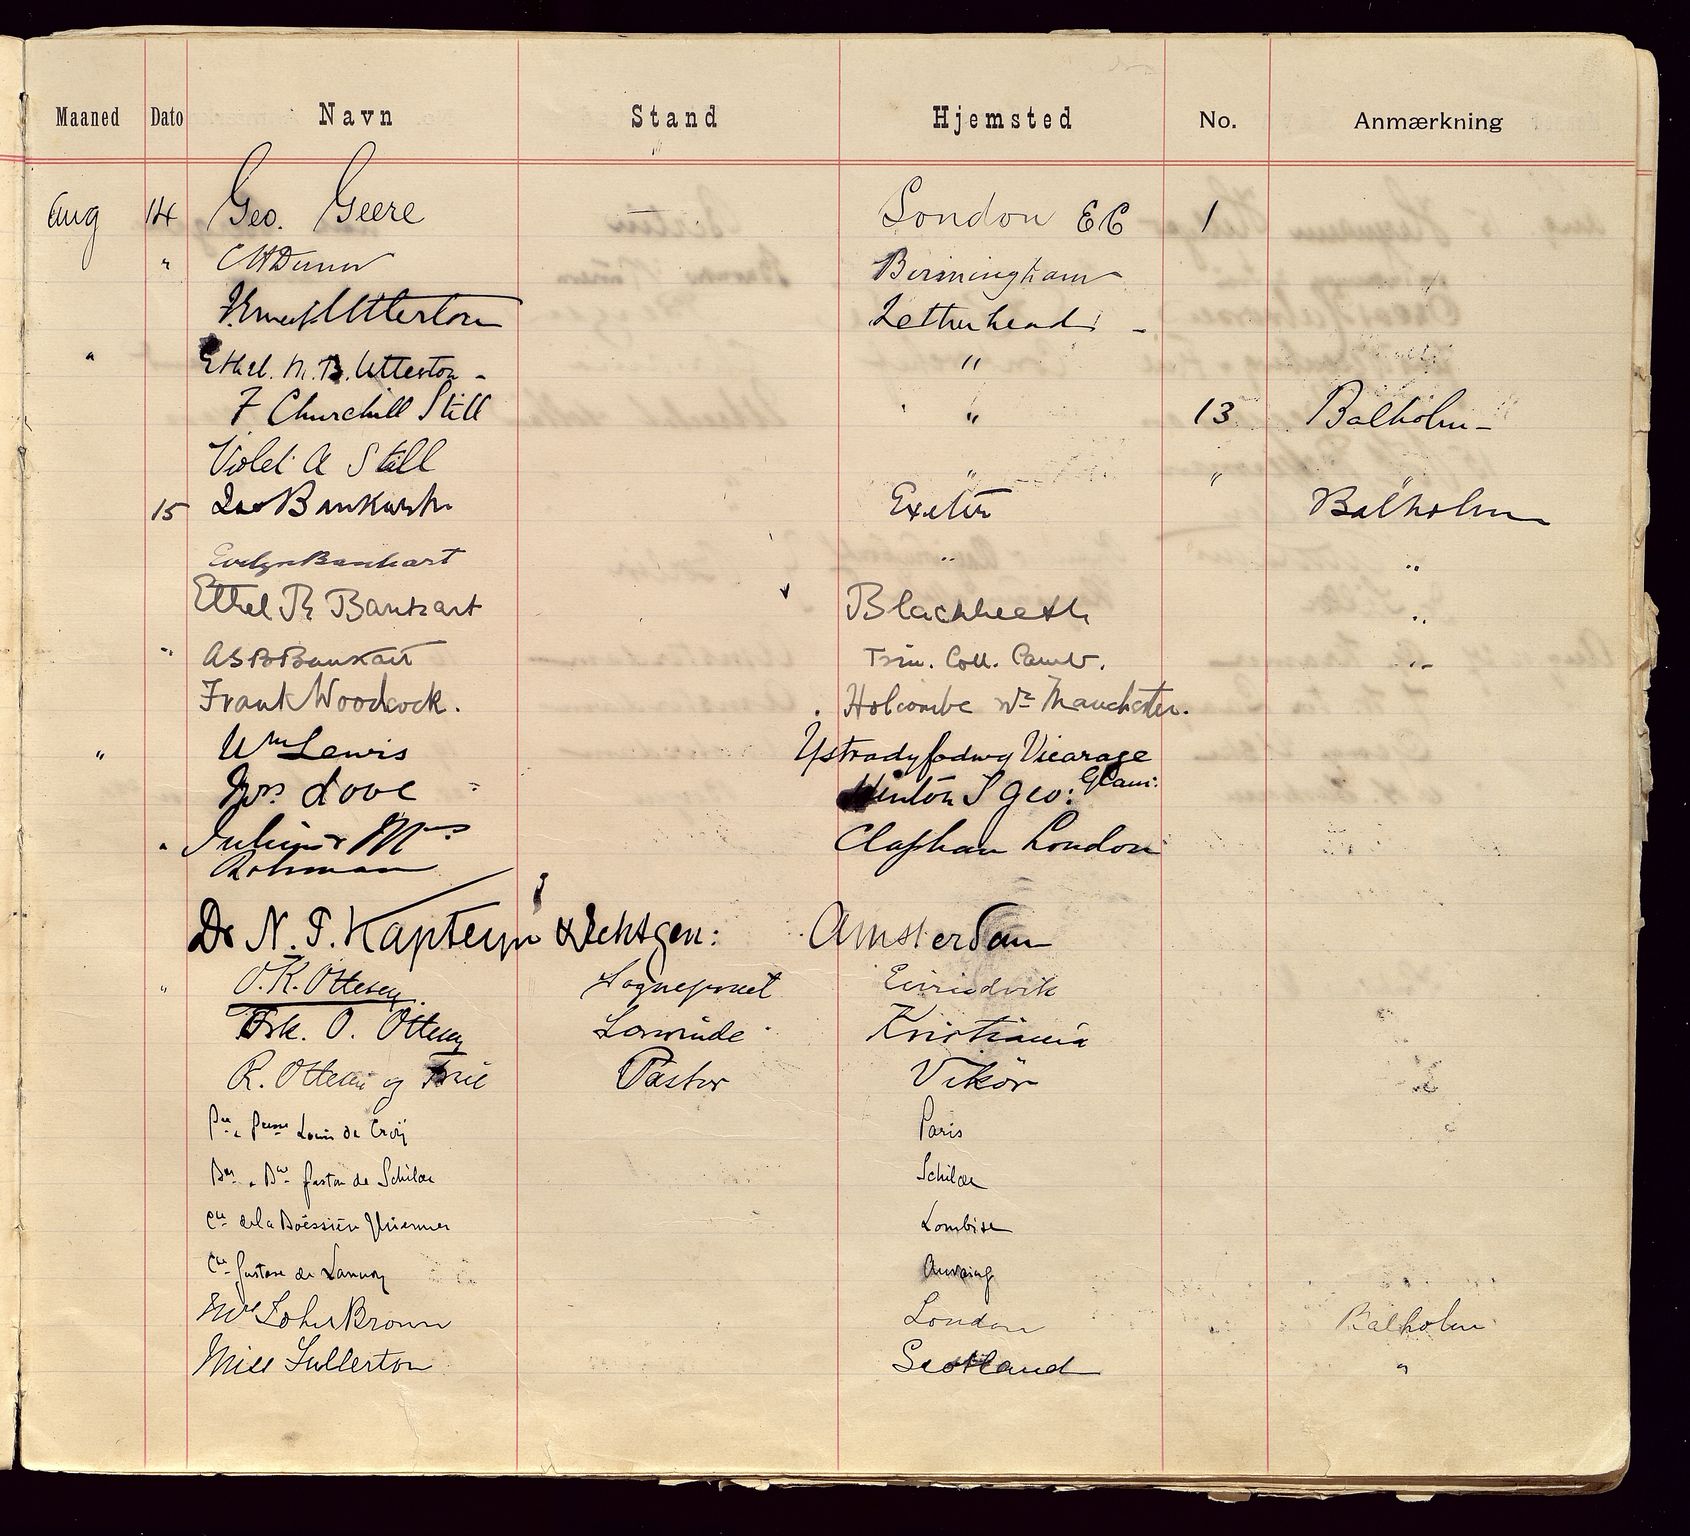 Maaned Dato Navn Stand Hjemsted No. Anmærkning
Aug 14 Geo. Geere London EC 1
" Birmingham
Utterton Letherhead -
" Ethel. M. B. Utterton - "
F Churchill Still " 13 Balholm -
Violet A Still " "
15 Bankart Exeter Balholm
Evelyn Bankart " "
Ethel B Bankart Blackheath "
" A S B Bankart Trin. Coll. Camb. "
Frank Woodcock. Holcombe Nr Manchester.
" Wm Lewis Ystradyfodwg Vicarage
Glam:
Mrs Love Hinton S Geo:
" Julius & Mrs Clapham London
Rohman
Dr N. P. Kapteyn & Echtgen: Amsterdam
" O. K. Ottesen Sogneprest Eivindvik
Frk. O. Ottesen Lærerinde Kristiania
R. Ottesen og Frue Pastor Vikör
Pce & Pcesse Louis de Croÿ Paris
Bon & Bne Gaston de Schilde Schilde
Cte de la Boëssière Thiennes Lombise
Cte Gustave de Lannoy Anvaing
Mrs John Brown London Balholm
Miss Fullerton Scotland "